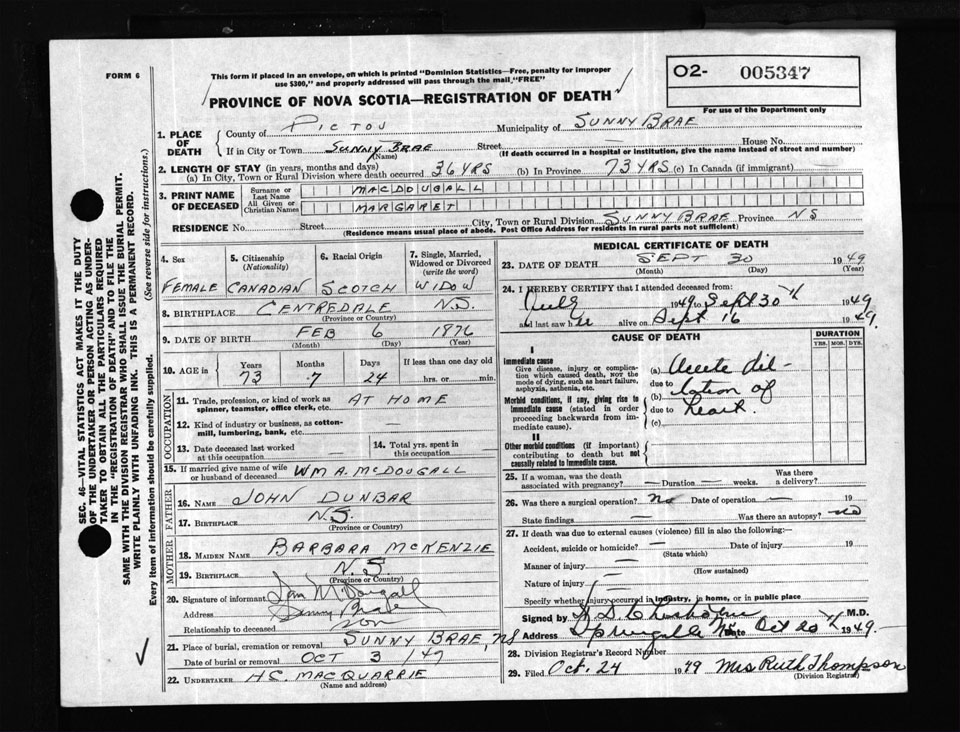 FORM 6
This form if placed in an envelope, on which is printed "Dominion Statistics—Free, penalty for improper
use $300," and properly addressed will pass through the mail "FREE"
PROVINCE OF NOVA SCOTIA—REGISTRATION OF DEATH
O2- 005347
For use of the Department only
1. PLACE OF DEATH
County of PICTOU Municipality of SUNNY BRAE
If in City or Town SUNNY BRAE Street — House No.
(Name) (If death occurred in a hospital or institution, give the name instead of street and number)
2. LENGTH OF STAY (in years, months and days)
(a) In City, Town or Rural Division where death occurred 36 YRS (b) In Province 73 YRS (c) In Canada (if immigrant)
3. PRINT NAME OF DECEASED
Surname or Last Name MACDOUGALL
All Given or Christian Names MARGARET
RESIDENCE No. Street City, Town or Rural Division SUNNY BRAE Province NS
(Residence means usual place of abode. Post Office Address for residents in rural parts not sufficient)
4. Sex
FEMALE
5. Citizenship (Nationality)
CANADIAN
6. Racial Origin
SCOTCH
7. Single, Married, Widowed or Divorced (write the word)
WIDOW
8. BIRTHPLACE CENTREDALE N.S.
(Province or Country)
9. DATE OF BIRTH FEB 6 1876
(Month) (Day) (Year)
10. AGE in
Years Months Days If less than one day old
73 - 7 24 hrs. or min.
OCCUPATION
11. Trade, profession, or kind of work as
spinner, teamster, office clerk, etc. AT HOME
12. Kind of industry or business, as cotton-
mill, lumbering, bank, etc. —
13. Date deceased last worked
at this occupation
14. Total yrs. spent in
this occupation
15. If married give name of wife
or husband of deceased WM A. MCDOUGALL
FATHER
16. NAME JOHN DUNBAR
17. BIRTHPLACE N.S.
(Province or Country)
MOTHER
18. MAIDEN NAME BARBARA MCKENZIE
19. BIRTHPLACE N.S.
(Province or Country)
20. Signature of informant McDougall
Address Sunny Brae
Relationship to deceased son
21. Place of burial, cremation or removal SUNNY BRAE, NS
Date of burial or removal OCT 3 /49
22. UNDERTAKER H.C. MACQUARRIE
(Name and address)
MEDICAL CERTIFICATE OF DEATH
23. DATE OF DEATH SEPT 30 1949
(Month) (Day) (Year)
24. I HEREBY CERTIFY that I attended deceased from:
July 1949 to Sept 30th 1949
and last saw her alive on Sept 16 1949.
CAUSE OF DEATH
DURATION
YRS. MOS. DYS.
I
Immediate cause
Give disease, injury or complica-
tion which caused death, NOT the
mode of dying, such as heart failure,
asphyxia, asthenia, etc.
(a) Acute dil-
due to
Morbid conditions, if any, giving rise to
immediate cause (stated in order
proceeding backwards from im-
mediate cause).
(b) lation of
due to heart.
(c)
II
Other morbid conditions (if important)
contributing to death but not
causally related to immediate cause.
25. If a woman, was the death
associated with pregnancy? — Duration — weeks. Was there
a delivery?
26. Was there a surgical operation? No Date of operation — 19
State findings — Was there an autopsy? no
27. If death was due to external causes (violence) fill in also the following:—
Accident, suicide or homicide? — Date of injury 19
(State which)
Manner of injury —
(How sustained)
Nature of injury —
Specify whether injury occurred in industry, in home, or in public place
Signed by Chisholm M.D.
Address Springville NS Date Oct 20th 1949.
28. Division Registrar's Record Number
29. Filed Oct. 24 1949 Mrs Ruth Thompson
(Division Registrar)
SEC. 46—VITAL STATISTICS ACT MAKES IT THE DUTY
OF THE UNDERTAKER OR PERSON ACTING AS UNDER-
TAKER TO OBTAIN ALL THE PARTICULARS REQUIRED
IN THE "REGISTRATION OF DEATH" AND TO FILE THE
SAME WITH THE DIVISION REGISTRAR WHO SHALL ISSUE THE BURIAL PERMIT.
WRITE PLAINLY WITH UNFADING INK. THIS IS A PERMANENT RECORD.
Every item of information should be carefully supplied. (See reverse side for instructions.)